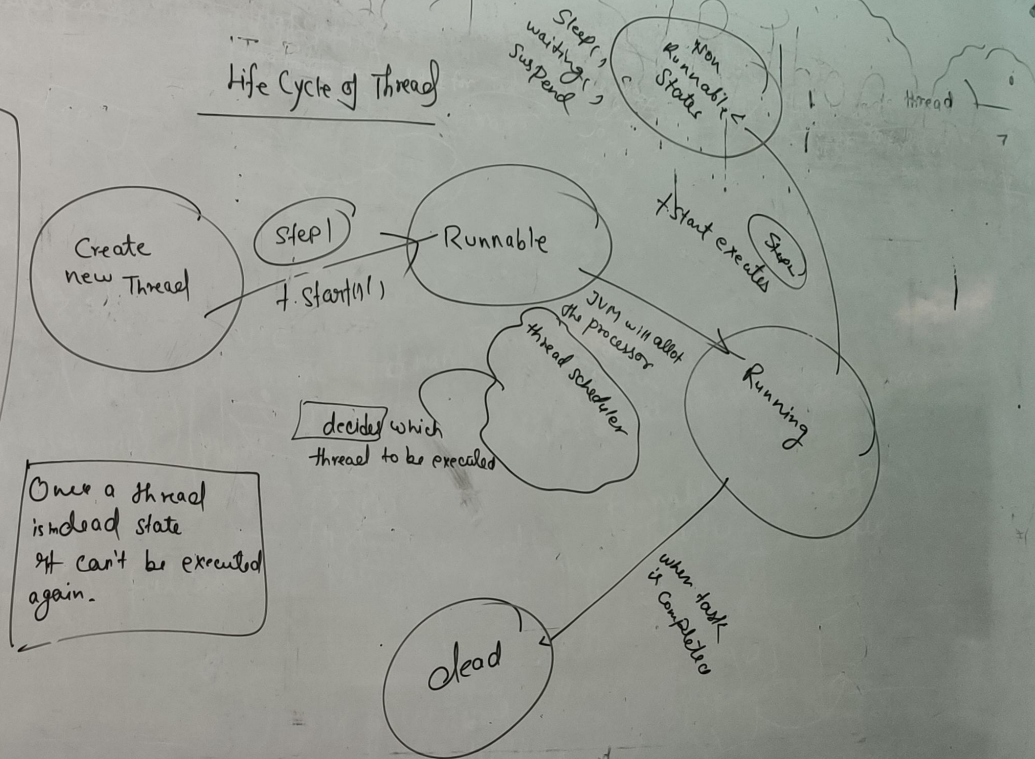 Life Cycle of Thread
Sleep(),
waiting(),
Suspend
Non
Runnable
States
thread
Create
new Thread
Step1
t.start()
Runnable
t.start executes
Step2
JVM will allot
the processor
Running
thread scheduler
decides which
thread to be executed
Once a thread
is in dead state
it can't be executed
again.
when task
is completed
dead